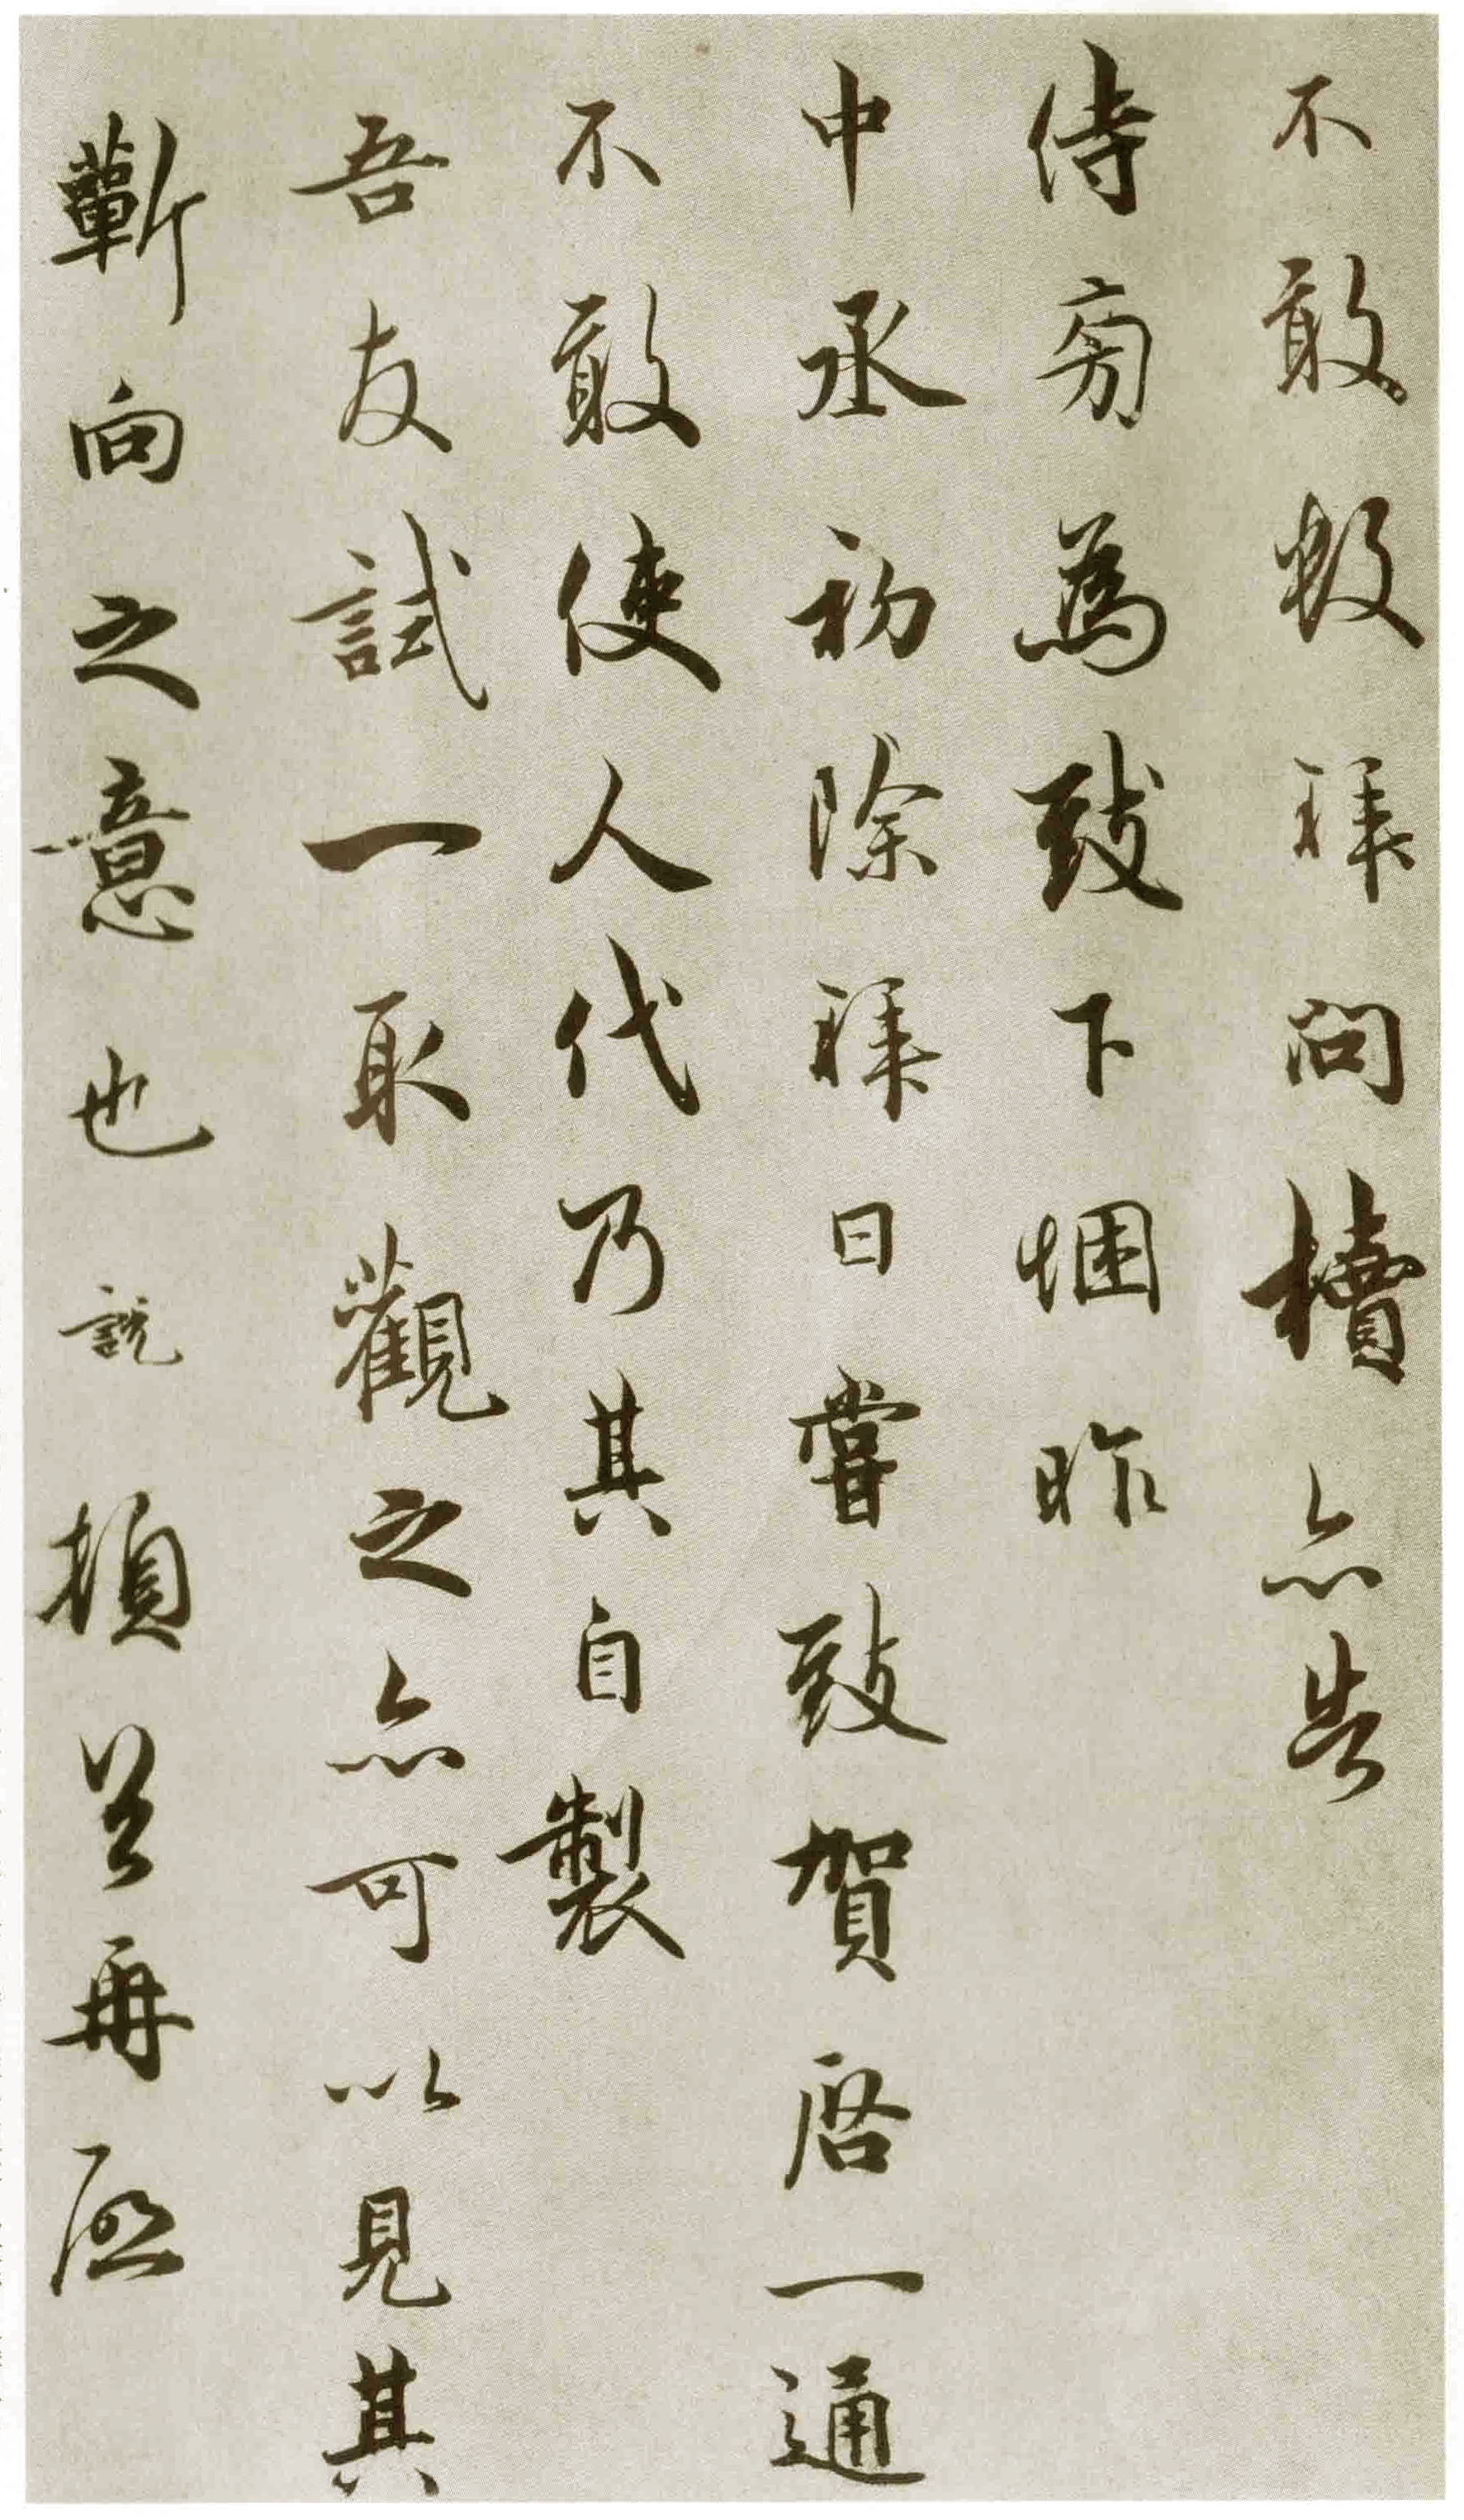 不敢數拜問櫝亦告
侍旁為致下悃昨
中丞初除拜日嘗致賀啓一通
不敢使人代乃其自製
吾友試一取觀之亦可以見其
蘄向之意也說頓首再啟